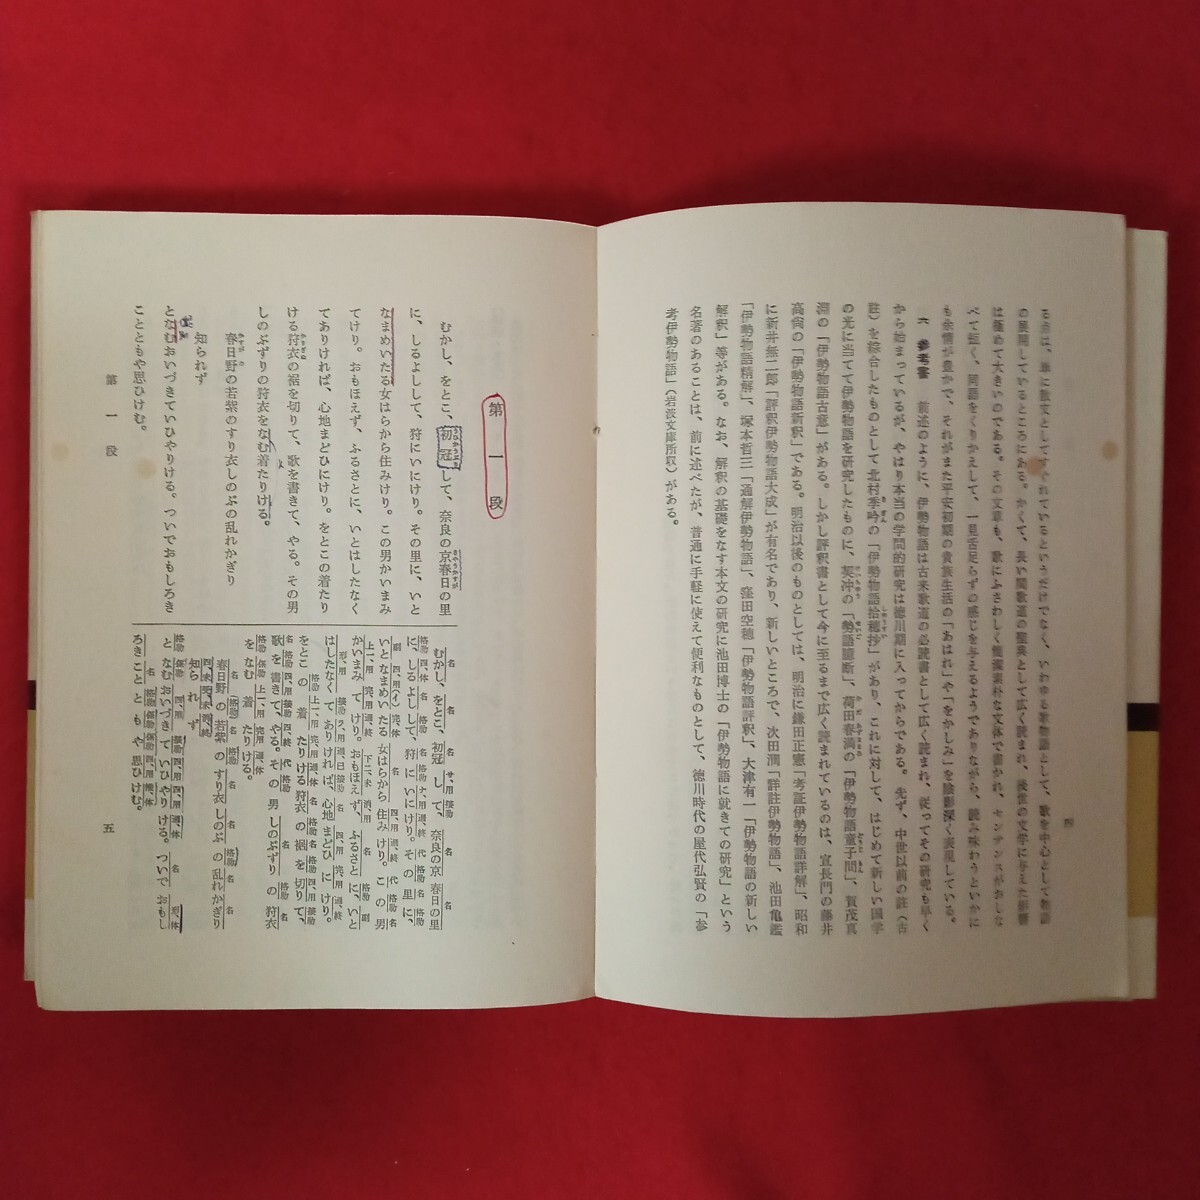 る点は、単に散文としてすぐれているというだけでなく、いわゆる歌物語として、歌を中心として物語
の展開しているところにある。かくて、長い間歌道の聖典として広く読まれ、後世の文学に与えた影響
は極めて大きいのである。その文章も、歌にふさわしく簡潔素朴な文体で書かれ、センテンスがおしな
べて短く、同語をくりかえして、一見舌足らずの感じを与えるようでありながら、読み味わうといかに
も余情が豊かで、それがまた平安初期の貴族生活の「あはれ」や「をかしみ」を陰影深く表現している。
六 参考書 前述のように、伊勢物語は古来歌道の必読書として広く読まれ、従ってその研究も早く
から始まっているが、やはり本当の学問的研究は徳川期に入ってからである。先ず、中世以前の註(古
註)を綜合したものとして北村季吟の「伊勢物語拾穂抄」があり、これに対して、はじめて新しい国学
の光に当てて伊勢物語を研究したものに、契冲の「勢語臆断」、荷田春満の「伊勢物語童子問」、賀茂真
淵の「伊勢物語古意」がある。しかし評釈書として今に至るまで広く読まれているのは、宣長門の藤井
高尚の「伊勢物語新釈」である。明治以後のものとしては、明治に鎌田正憲「考証伊勢物語詳解」、昭和
に新井無二郎「評釈伊勢物語大成」が有名であり、新しいところで、次田潤「詳註伊勢物語」、池田亀鑑
「伊勢物語精解」、塚本哲三「通解伊勢物語」、窪田空穂「伊勢物語評釈」、大津有一「伊勢物語の新しい
解釈」等がある。なお、解釈の基礎をなす本文の研究に池田博士の「伊勢物語に就きての研究」という
名著のあることは、前に述べたが、普通に手軽に使えて便利なものとして、徳川時代の屋代弘賢の「参
考伊勢物語」(岩波文庫所収)がある。
四
第一段
むかし、をとこ、初冠して、奈良の京春日の里
に、しるよしして、狩にいにけり。その里に、いと
なまめいたる女はらから住みけり。この男かいまみ
てけり。おもほえず、ふるさとに、いとはしたなく
てありければ、心地まどひにけり。をとこの着たり
ける狩衣の裾を切りて、歌を書きて、やる。その男
しのぶずりの狩衣をなむ着たりける。
春日野の若紫のすり衣しのぶの乱れかぎり
知られず
となむおいづきていひやりける。ついでおもしろき
ことともや思ひけむ。
むかし、をとこ、初冠して、奈良の京春日の里
に、しるよしして、狩にいにけり。その里に、
いとなまめいたる女はらから住みけり。この男
かいまみてけり。おもほえず、ふるさとに、いと
はしたなくてありければ、心地まどひにけり。
をとこの着たりける狩衣の裾を切りて、
歌を書きて、やる。その男しのぶずりの狩衣
をなむ着たりける。
春日野の若紫のすり衣しのぶの乱れかぎり
知られず
となむおいづきていひやりける。ついでおもし
ろきことともや思ひけむ。
第一段
五